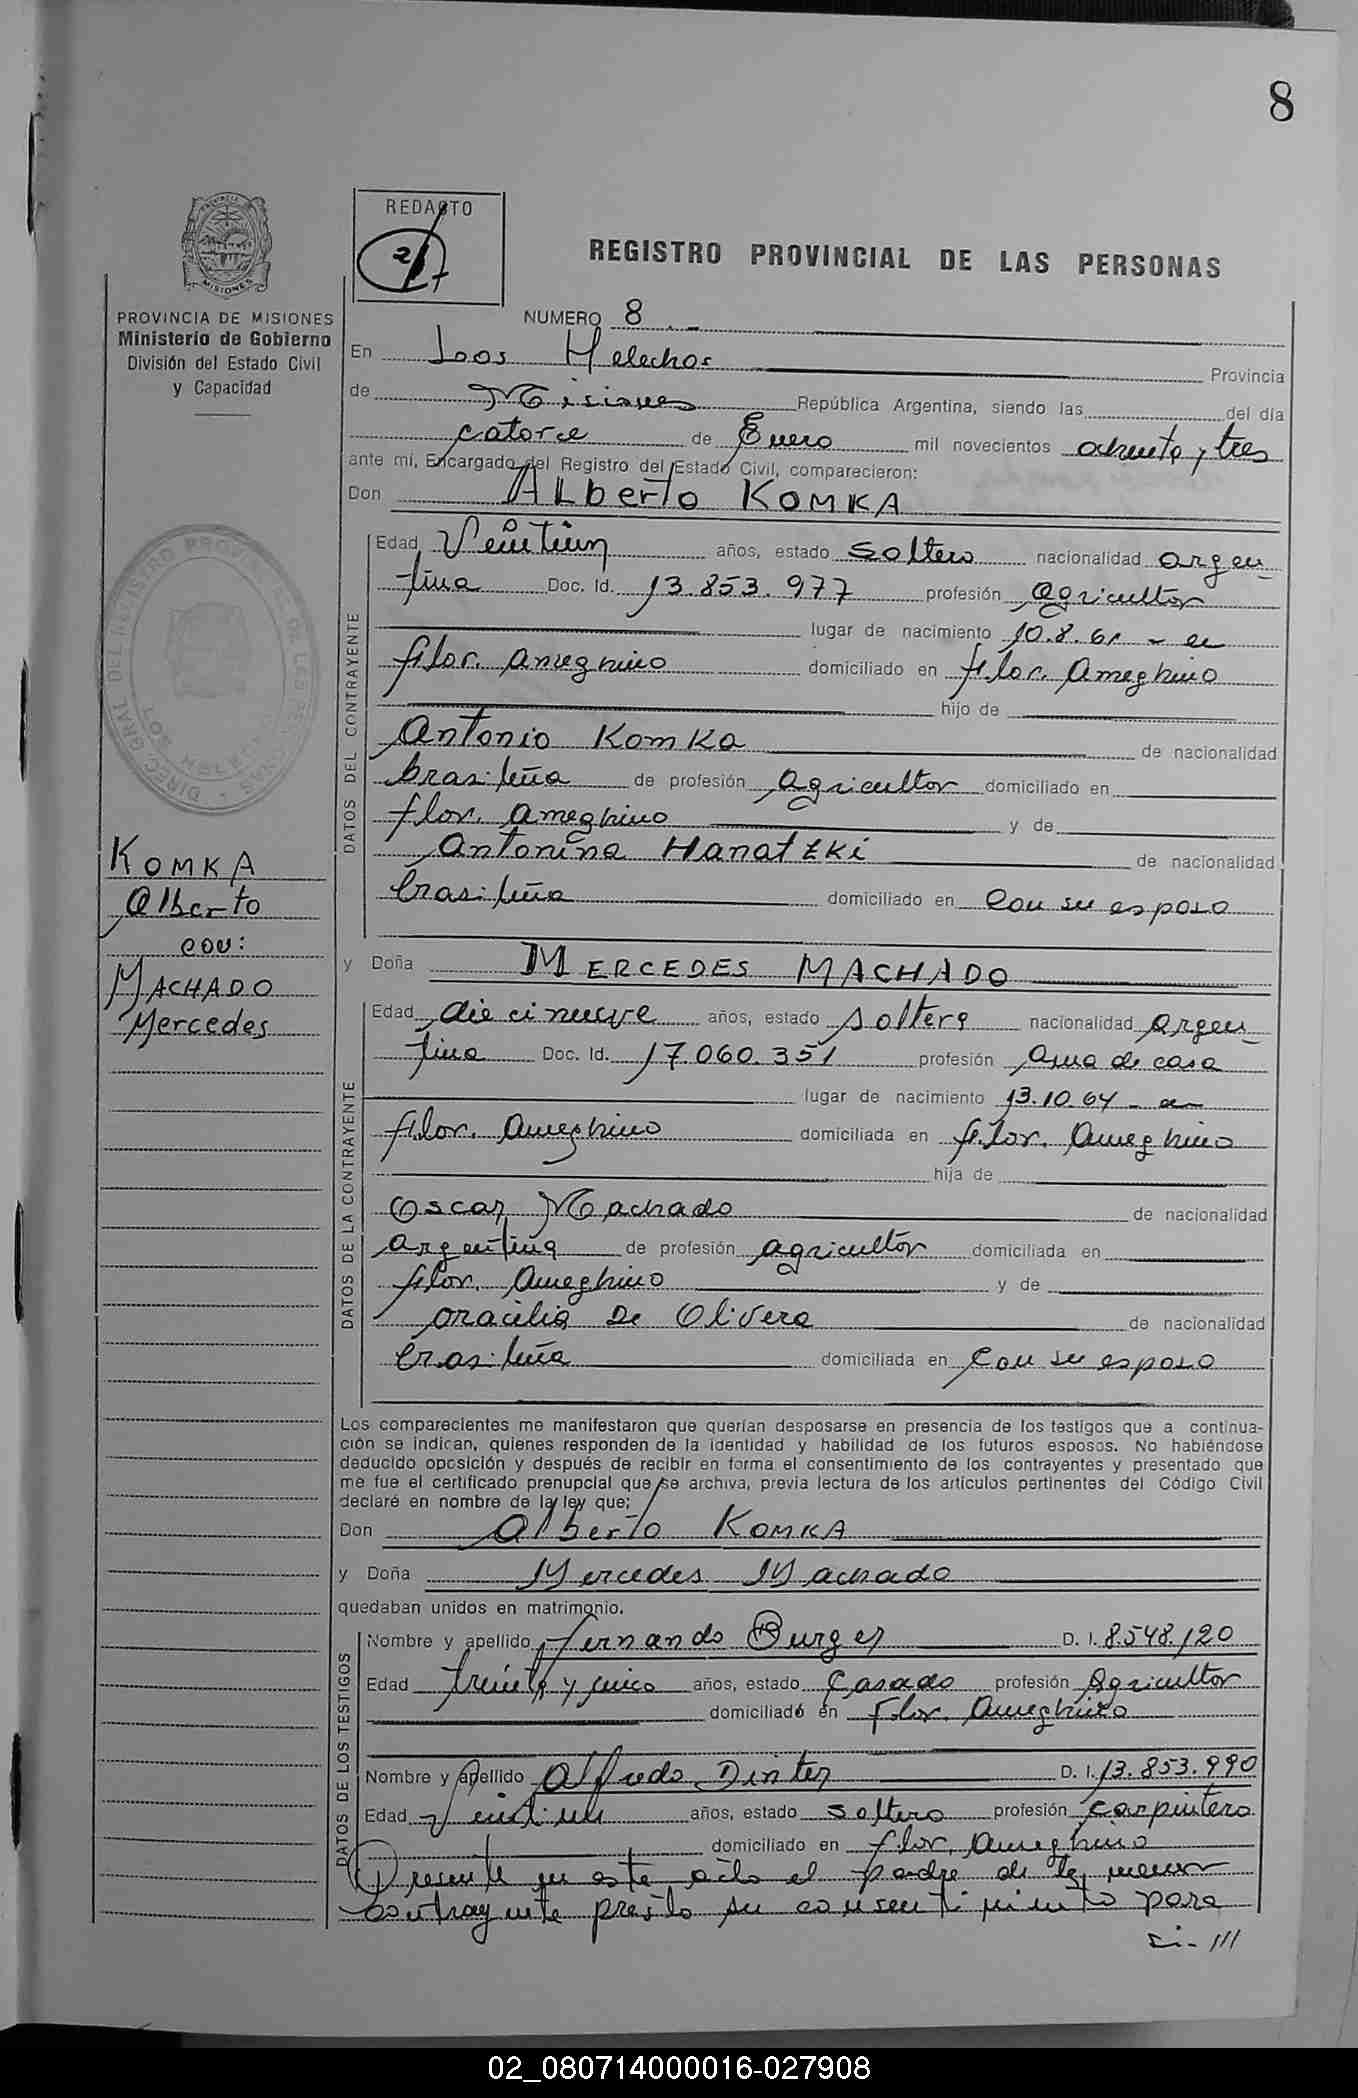 8
REDACTO
2/7
REGISTRO PROVINCIAL DE LAS PERSONAS
PROVINCIA DE MISIONES
Ministerio de Gobierno
División del Estado Civil
y Capacidad
NUMERO 8
En Loos Helechos Provincia
de Misiones República Argentina, siendo las del día
catorce de Enero mil novecientos ochenta y tres
ante mí, Encargado del Registro del Estado Civil, comparecieron:
Don ALberto KOMKA
DATOS DEL CONTRAYENTE
Edad Veintiun años, estado soltero nacionalidad argen
tina Doc. Id. 13.853.977 profesión agricultor
lugar de nacimiento 10.8.61 - en
flor. ameghino domiciliado en flor. Ameghino
hijo de
Antonio Komka de nacionalidad
brasileña de profesión agricultor domiciliado en
flor. ameghino y de
Antonina Hanatzki de nacionalidad
brasileña domiciliado en con su esposo
KOMKA
Alberto
con:
MACHADO
Mercedes
y Doña MERCEDES MACHADO
DATOS DE LA CONTRAYENTE
Edad diecinueve años, estado soltera nacionalidad argen
tina Doc. Id. 17.060.351 profesión ama de casa
lugar de nacimiento 13.10.64 - en
flor. Ameghino domiciliada en flor. Ameghino
hija de
Oscar Machado de nacionalidad
argentina de profesión agricultor domiciliada en
flor. Ameghino y de
oracilia De Olivera de nacionalidad
brasileña domiciliada en con su esposo
Los comparecientes me manifestaron que querían desposarse en presencia de los testigos que a continua-
ción se indican, quienes responden de la identidad y habilidad de los futuros esposos. No habiéndose
deducido oposición y después de recibir en forma el consentimiento de los contrayentes y presentado que
me fue el certificado prenupcial que se archiva, previa lectura de los artículos pertinentes del Código Civil
declaré en nombre de la ley que:
Don Alberto KOMKA
y Doña Mercedes Machado
quedaban unidos en matrimonio.
DATOS DE LOS TESTIGOS
Nombre y apellido fernando Burger D. I. 8.548.120
Edad treinta y cinco años, estado Casado profesión Agricultor
domiciliado en Flor. Ameghino
Nombre y apellido Alfredo Dinter D. I. 13.853.990
Edad Veintiun años, estado soltero profesión carpintero
domiciliado en flor. Ameghino
Presente en este acto el padre de la menor
contrayente presto su consentimiento para
si- ///
02_080714000016-027908